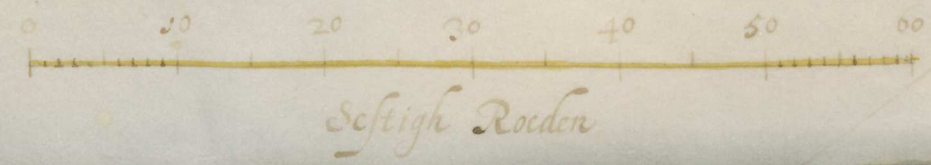 0 10 20 30 40 50 60
Sestigh Roeden